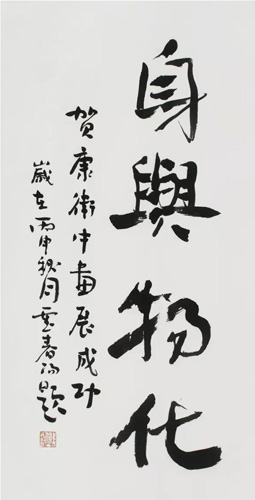 身與物化
贺康衛中畫展成功
歲在丙申秋月雲春鸿題